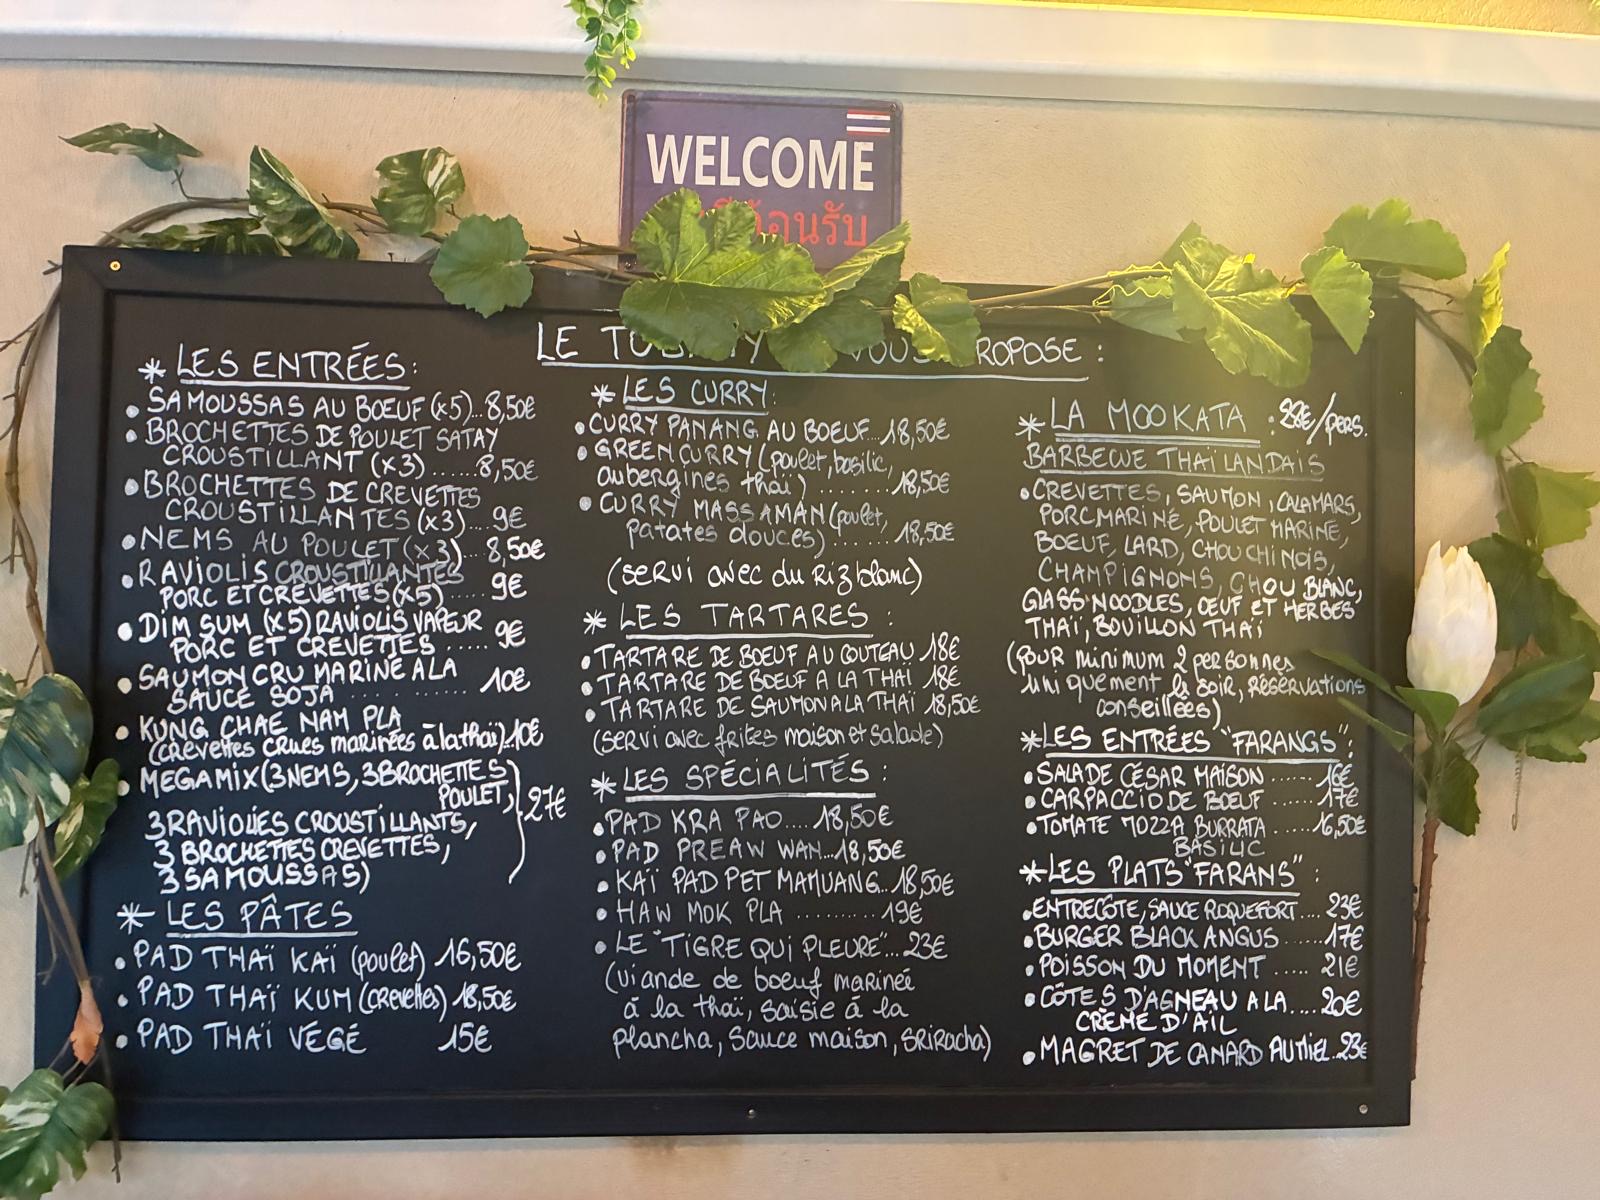 WELCOME
LE VOUS PROPOSE :
* LES ENTRÉES :
• SAMOUSSAS AU BOEUF (x5)... 8,50€
• BROCHETTES DE POULET SATAY
CROUSTILLANT (x3) ...... 8,50€
• BROCHETTES DE CREVETTES
CROUSTILLANTES (x3).... 9€
• NEMS AU POULET (x3).... 8,50€
• RAVIOLIS CROUSTILLANTES
PORC ET CREVETTES (x5) ..... 9€
• DIM SUM (x5) RAVIOLIS VAPEUR
PORC ET CREVETTES ..... 9€
• SAUMON CRU MARINE A LA
SAUCE SOJA ............ 10€
• KUNG CHAE NAM PLA
(crevettes crues marinées à la thaï)..10€
• MEGAMIX (3 NEMS, 3 BROCHETTES
POULET,
3 RAVIOLIES CROUSTILLANTS,
3 BROCHETTES CREVETTES,
3 SAMOUSSAS) 27€
* LES PÂTES
• PAD THAÏ KAÏ (poulet) 16,50€
• PAD THAÏ KUM (crevettes) 18,50€
• PAD THAÏ VÉGÉ 15€
* LES CURRY :
• CURRY PANANG AU BOEUF... 18,50€
• GREEN CURRY (poulet, basilic,
aubergines thaï) ......... 18,50€
• CURRY MASSAMAN (poulet,
patates douces) ....... 18,50€
(servi avec du Riz blanc)
* LES TARTARES :
• TARTARE DE BOEUF AU COUTEAU 18€
• TARTARE DE BOEUF A LA THAÏ 18€
• TARTARE DE SAUMON A LA THAÏ 18,50€
(servi avec frites maison et Salade)
* LES SPÉCIALITÉS :
• PAD KRA PAO..... 18,50€
• PAD PREAW WAN...18,50€
• KAÏ PAD PET MAMUANG...18,50€
• HAW MOK PLA .......... 19€
• LE "TIGRE QUI PLEURE"... 23€
(viande de boeuf marineé
à la thaï, saisie à la
plancha, Sauce maison, SRiRacha)
* LA MOOKATA : 28€/pers.
BARBECUE THAÏLANDAIS
• CREVETTES, SAUMON, CALAMARS,
PORC MARINÉ, POULET MARINÉ,
BOEUF, LARD, CHOU CHINOIS,
CHAMPIGNONS, CHOU BLANC,
GLASS NOODLES, OEUF ET HERBES
THAÏ, BOUILLON THAÏ
(pour minimum 2 personnes
uniquement le soir, réservations
conseillées)
* LES ENTRÉES "FARANGS" :
• SALADE CÉSAR MAISON ...... 16€
• CARPACCIO DE BOEUF ...... 17€
• TOMATE MOZZA BURRATA ..... 16,50€
BASILIC
* LES PLATS "FARANS" :
• ENTRECÔTE, SAUCE ROQUEFORT.... 23€
• BURGER BLACK ANGUS ...... 17€
• POISSON DU MOMENT ..... 21€
• CÔTES D'AGNEAU A LA.... 20€
CRÈME D'AIL
• MAGRET DE CANARD AU MIEL..23€